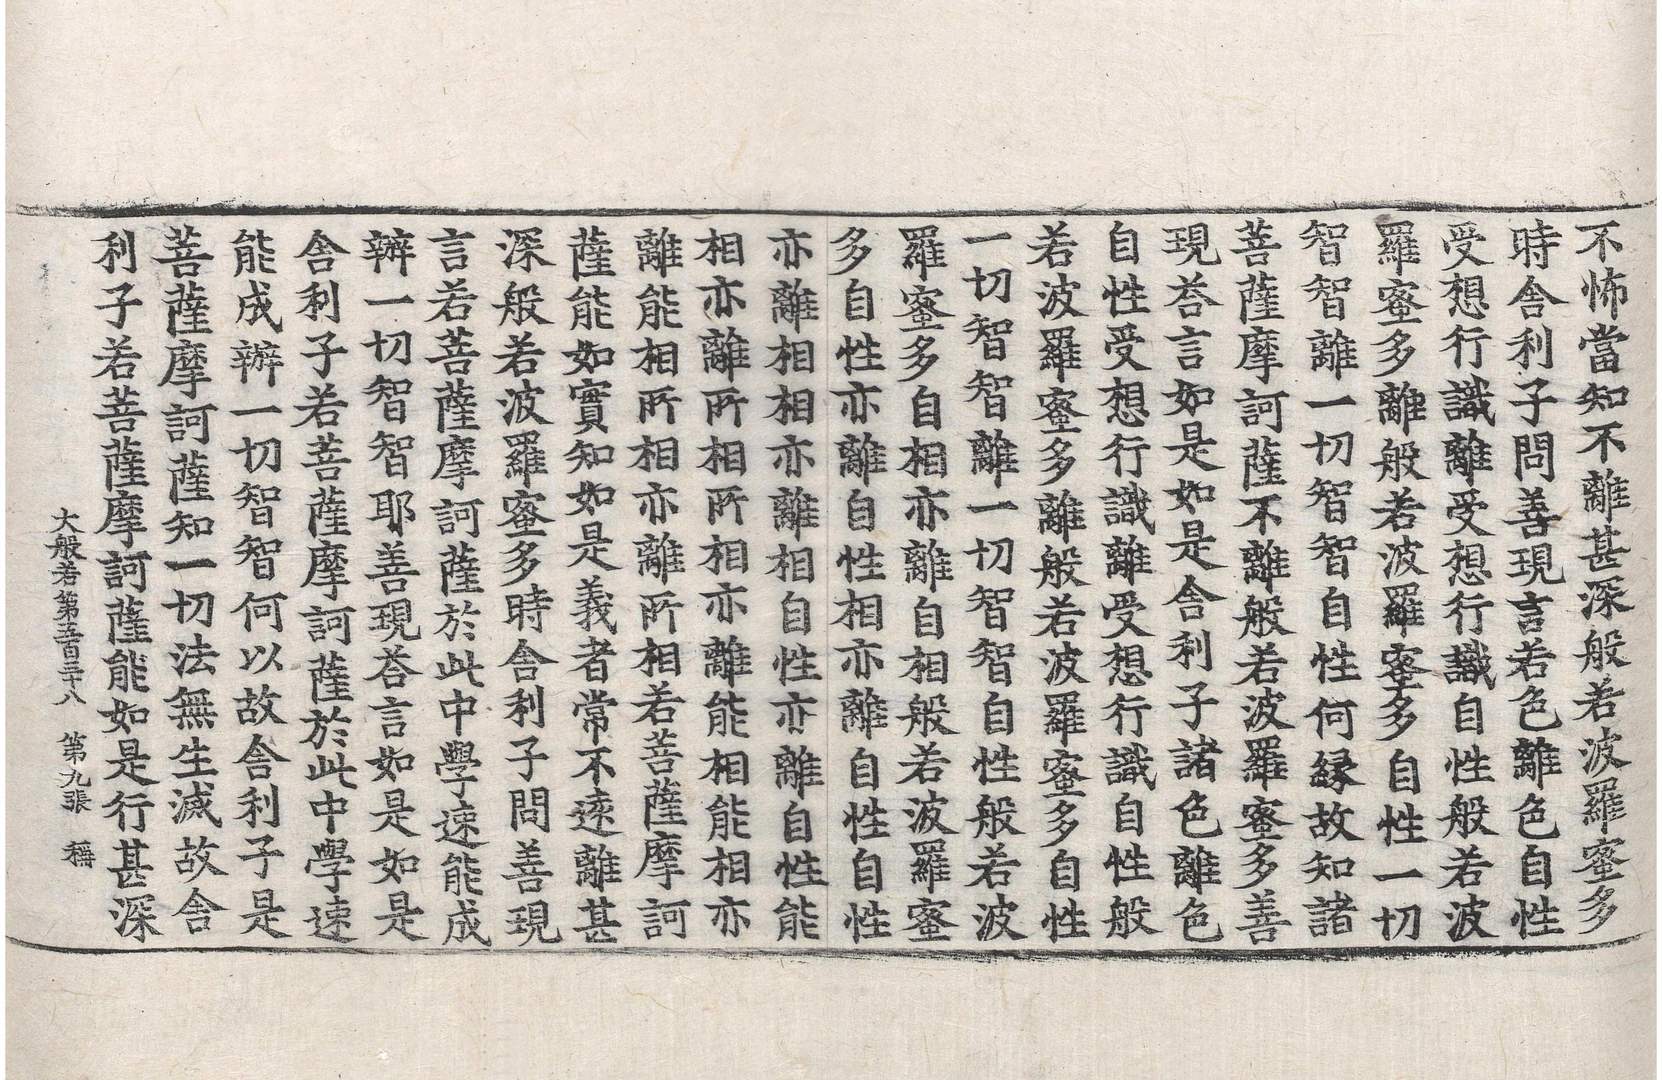 不怖當知不離甚深般若波羅蜜多
時舍利子問善現言若色離色自性
受想行識離受想行識自性般若波
羅蜜多離般若波羅蜜多自性一切
智智離一切智智自性何緣故知諸
菩薩摩訶薩不離般若波羅蜜多善
現荅言如是如是舍利子諸色離色
自性受想行識離受想行識自性般
若波羅蜜多離般若波羅蜜多自性
一切智智離一切智智自性般若波
羅蜜多自相亦離自相般若波羅蜜
多自性亦離自性相亦離自性自性
亦離相相亦離相自性亦離自性能
相亦離所相所相亦離能相能相亦
離能相所相亦離所相若菩薩摩訶
薩能如實知如是義者常不遠離甚
深般若波羅蜜多時舍利子問善現
言若菩薩摩訶薩於此中學速能成
辦一切智智耶善現荅言如是如是
舍利子若菩薩摩訶薩於此中學速
能成辦一切智智何以故舍利子是
菩薩摩訶薩知一切法無生滅故舍
利子若菩薩摩訶薩能如是行甚深
大般若第五百三十八 第九張 稱